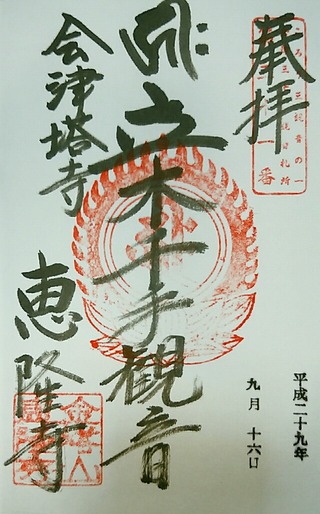 奉拝
ころり三観音の一
会津三十三観音札所
三十一番
立木千手観音
会津塔寺
恵隆寺
平成二十九年
九月 十六日